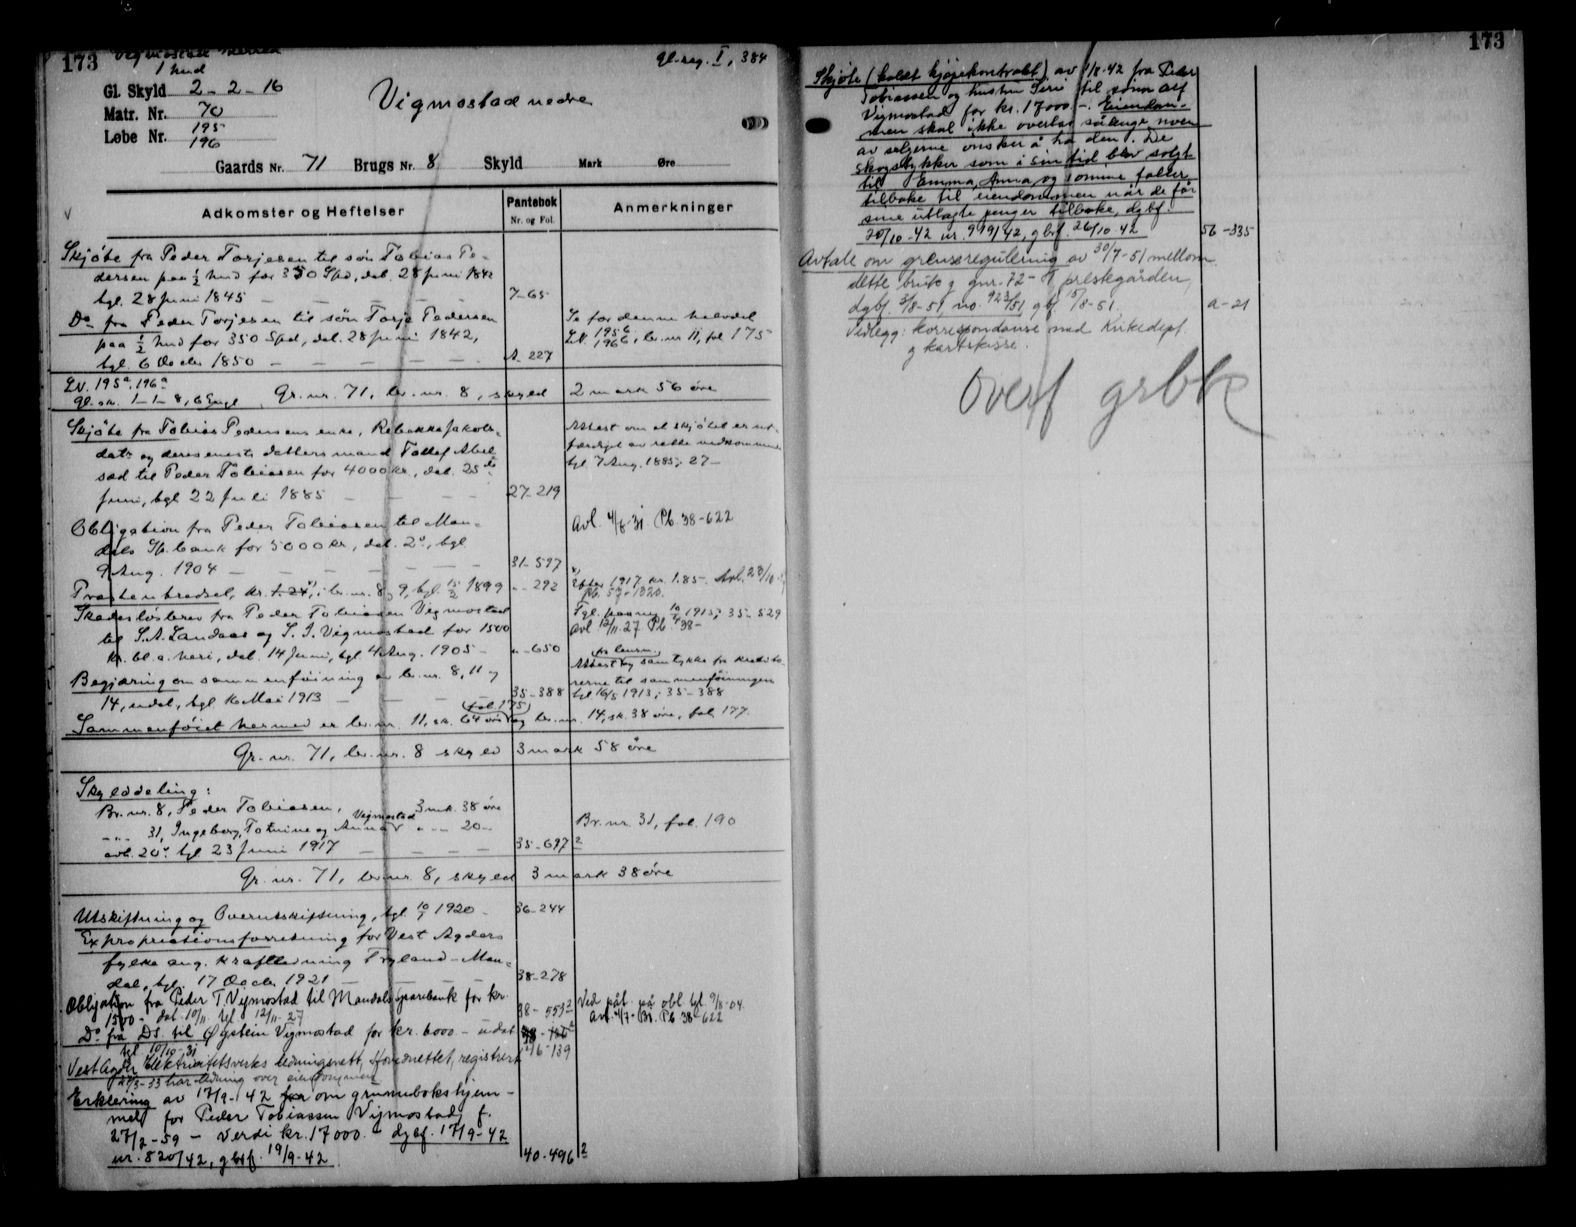 173
Vigmostad herred
1 hud
Gl. reg. I, 384
Gl. Skyld 2-2-16
Matr. Nr. 70
Løbe Nr. 195
196
Vigmostad nedre
Gaards Nr. 71 Brugs Nr. 8 Skyld Mark Øre
Adkomster og Heftelser
Pantebok
Nr. og Fol.
Anmerkninger
Skjøte fra Peder Torjesen til søn Tobias Pe-
dersen paa ½ hud for 350 Spd, dat. 28 juni 1842
tgl. 28 juni 1845 — 7-65
Do fra Peder Torjesen til søn Torje Pedersen
paa ½ hud for 350 Spd, dat. 28 juni 1842,
tgl. 6 Decbr 1850 — A 227
Se for denne halvdel
LN. 195b, 196b, br. nr 11, fol 175
LN. 195a, 196a
Gl. sk. 1-1-8, Gr. nr. 71, br. nr. 8, skyld 2 mark 56 øre
Skjøte fra Tobias Pedersens enke, Rebekka Jakobs-
datr og deres eneste datters mand Tollef Abel-
sæd til Peder Tobiasen for 4000 kr., dat. 25de
juni, tgl 22 juli 1885 — 27-219
Attest om at skjøtet er ut-
færdiget av rette vedkommende
tgl 7 Aug. 1885; 27-
Obligation fra Peder Tobiasen til Man-
dals Sp.bank for 5000 kr., dat. 2d, tgl
9 Aug. 1904 — 31-597
Avl. 4/8-31. Pb. 38-622
Præstenbredsel, kr. 1-24, i br. nr. 8 og 9, tgl. 15/2 1899 — " - 292
Efter 1917 kr. 1.85. Avl. 23/10
Skadesløsbrev fra Peder Tobiasen Vigmostad
til S. A. Landaas og S. I. Vigmostad for 1500
kr. bl. a. heri, dat. 14 juni, tgl. 4 Aug. 1905 - " - 650
Tgl. paany 10/4 1915; 35-529
avl 12/11-27 Pb 38-
Begjæring om sammenføining av br. nr. 8, 11 og
14, udat, tgl 16 Mai 1913 — 35-388
på lensm.
Attest og samtykke fra kredito-
rerne til sammenføiningen
tgl 16/5 1913; 35-388
Sammenføiet hermed er br. nr. 11, sk. 64 øre (fol. 175) og br. nr. 14, sk. 38 øre, fol. 177.
Gr. nr. 71, br. nr. 8 skyld 3 mark 58 øre
Skylddeling:
Br. nr. 8, Peder Tobiasen, 3 mk. 38 øre
" - " 31, Ingeborg, Totmine og Anna Vigmostad " - - 20 -
avh. 20de tgl 23 juni 1917 — 35-697²
Br. nr. 31, fol. 190
Gr. nr. 71, br. nr. 8, skyld 3 mark 38 øre
Utskiftning og Overutskiftning, tgl 10/7 1920 - 36-244
Expropriationsforretning for Vest Agders
fylke ang. kraftledning Tryland-Man-
dal, tgl. 17 Decbr. 1921 — 38-278
Obligation fra Peder T. Vigmostad til Mandals Sparebank for kr.
1500 - dat 10/11 tgl 12/11-27 38-553²
Ved påt. på obl tgl. 9/8-04
Avl. 4/7-31. Pb 38-622
Do fra Ds. til Øystein Vigmostad for kr. 6000.- udat
tgl 10/10-31
Vest Agder Elektricitetsverks ledningsnett, Hovednettet, registrert
27/3-33 har ledning over eiendommen 6-139
Erklæring av 17/9-42 om grunnbokshjem-
mel for Peder Tobiassen Vigmostad, f.
27/2-59 - Verdi kr. 17000.- dgbf. 17/9-42
nr. 820/42, gbf. 19/9-42 40-496²
173
Skjøte (kaldt kjøpekontrakt) av 1/8-42 fra Peder
Tobiassen og hustru Siri til sønn Alf
Vigmostad for kr. 17000.-. Eiendom-
men skal ikke overtas sålenge noen
av selgerne ønsker å ha den. De
skogstykker som i sin tid blev solgt
til Emma, Anna, og Tomine faller
tilbake til eiendommen når de får
sine utlagte penger tilbake, dgbf.
20/10-42 nr. 919/42, gbf. 26/10-42 56-335
Avtale om grenseregulering av 30/7-51 mellom
dette bruk og gnr. 72-1 prestegården,
dgbf. 3/8-51, no. 923/51 gbf 15/8-51. a-21
Vedlegg: korrespondanse med Kirkedept.
og kartskisse.
Overf grbbk